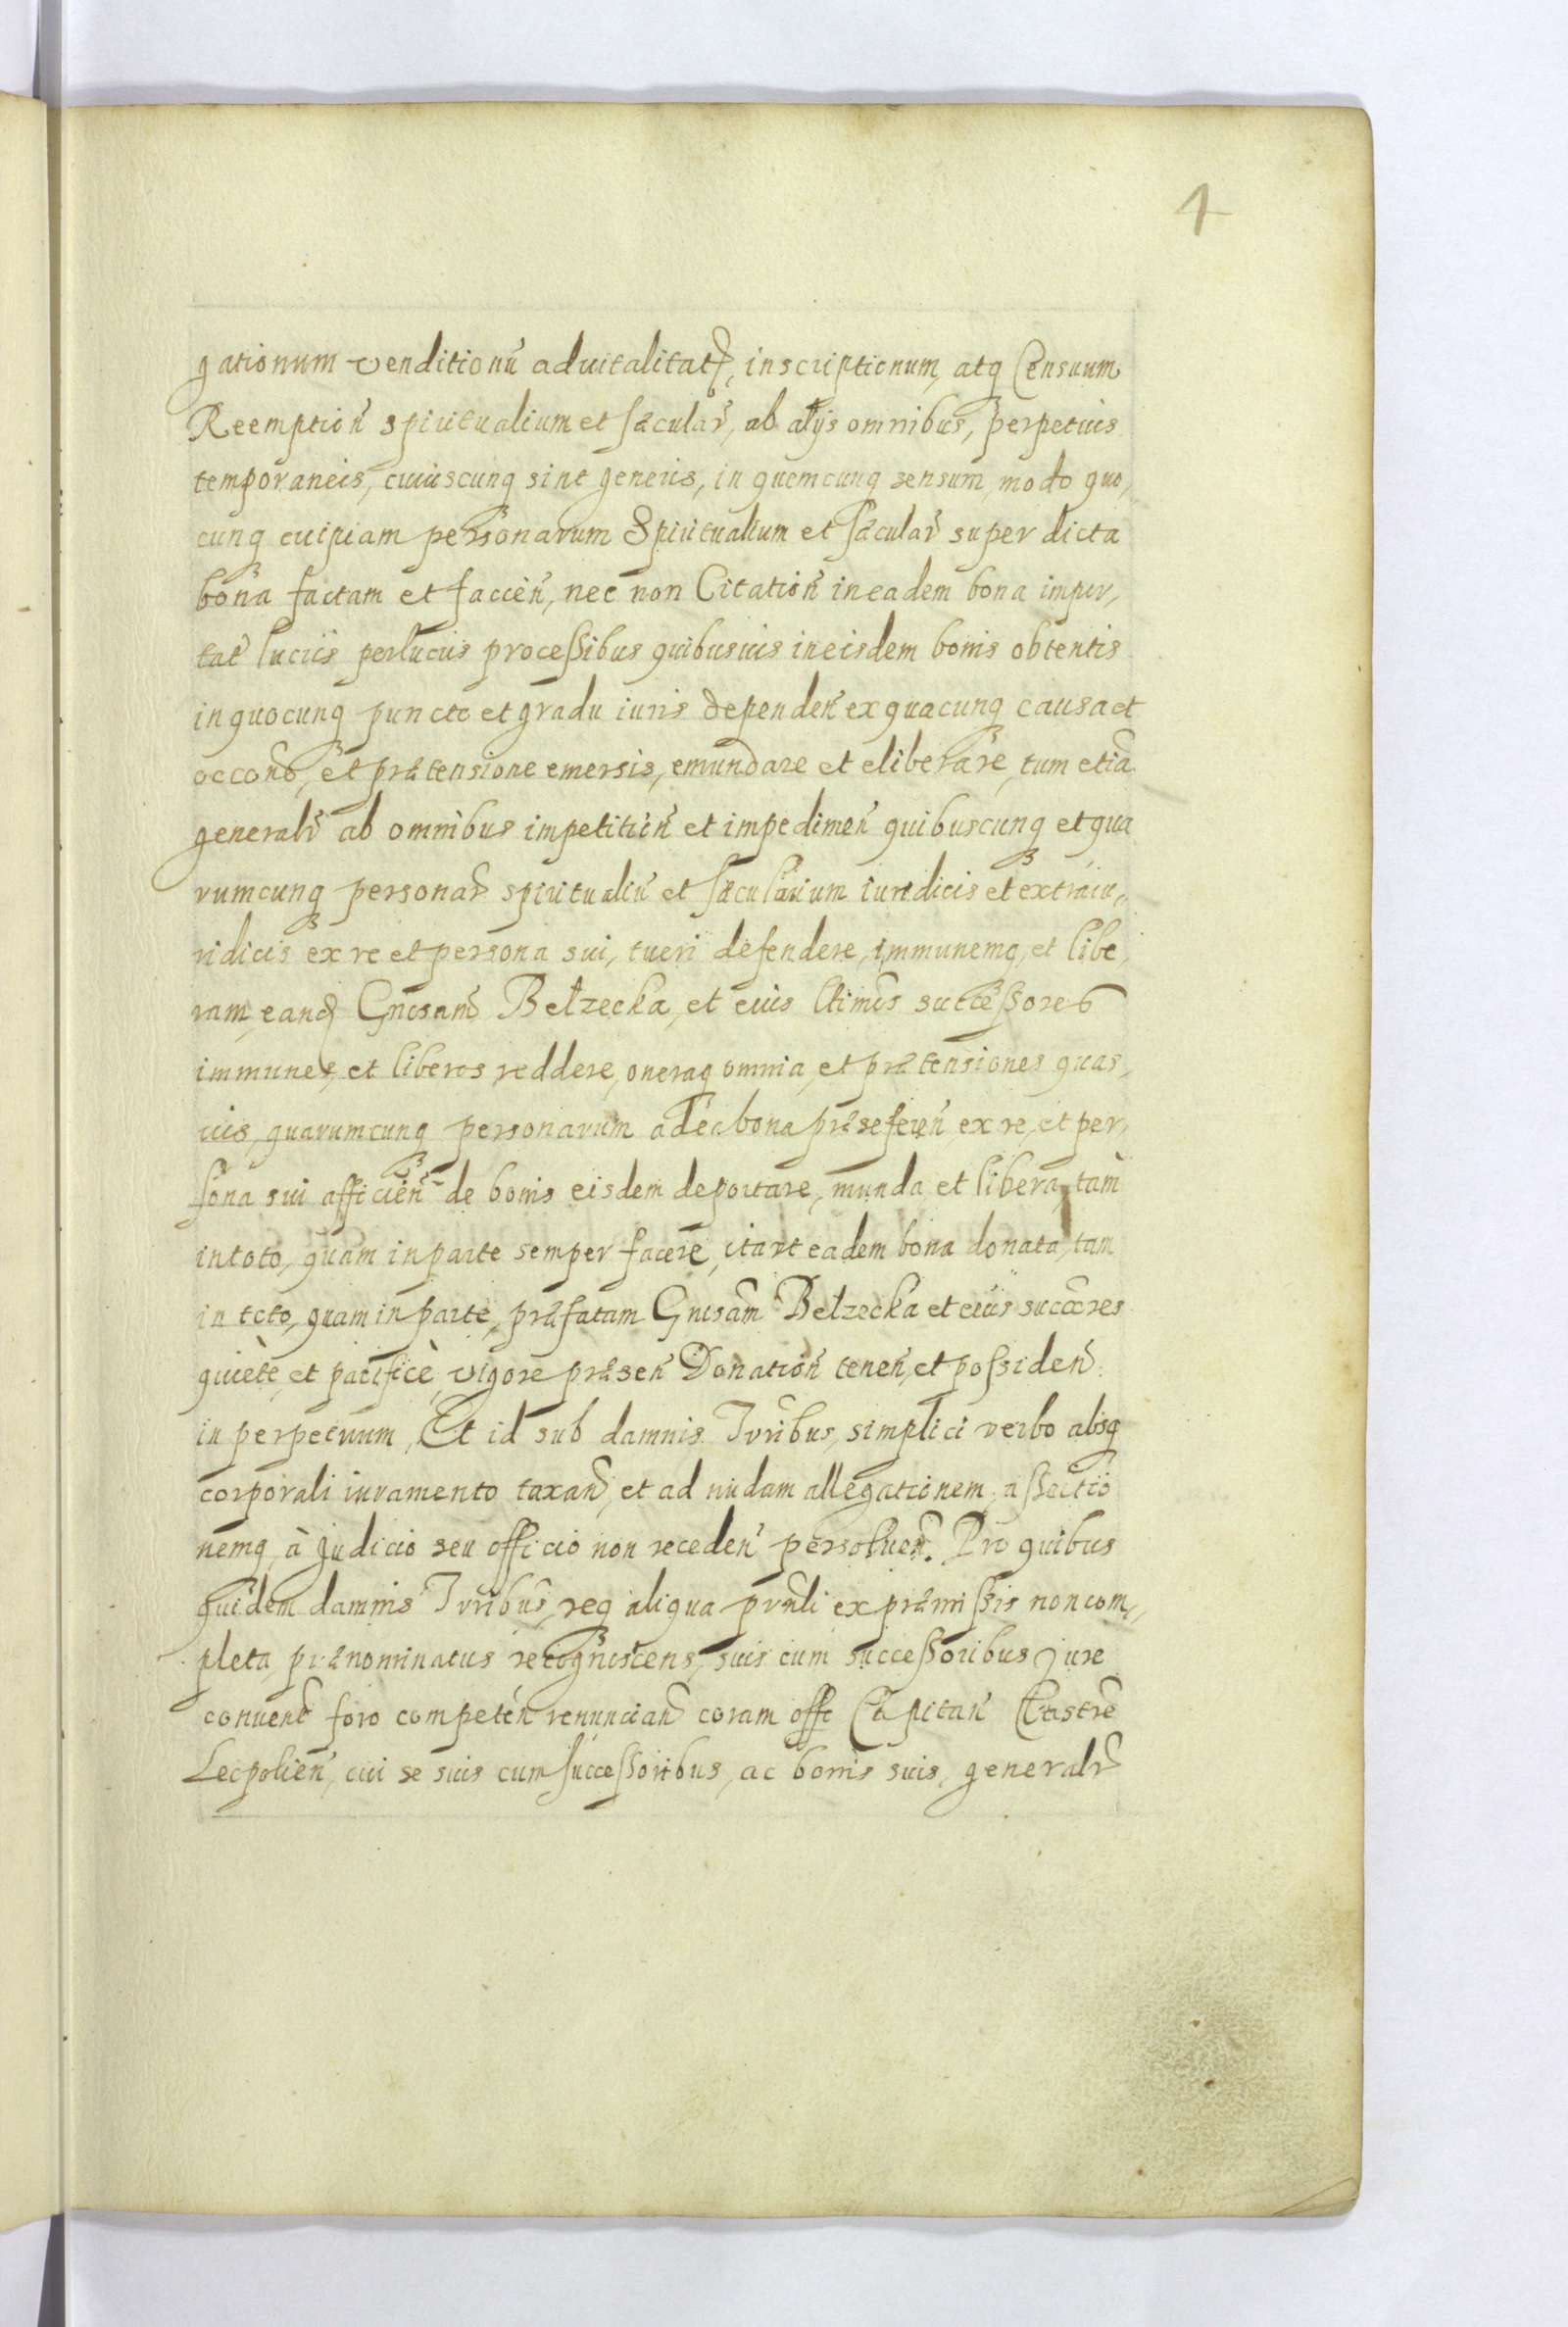 4
gationum venditionū advitalitat, inscriptionum, atq Censuum
Reemption̄ spiritualium et sæcular̄, ab alijs omnibus, perpetuis
temporaneis, cuiuscunq sint generis, in quemcunq sensum, modo quo,
cunq cuipiam personarum Spiritualium et sæcular̄ super dicta
bona factam et faccien̄, nec non Citation̄ in eadem bona impor,
tat̄ lucris perlucris processibus quibusuis in eisdem bonis obtentis
in quocunq puncto et gradu iuris dependen̄ ex quacunq causa et
occone, et prætensione emersis, emundare et eliberare, tum etiā
generalr̄ ab omnibus impetition̄ et impedimen̄ quibuscunq et qua
rumcunq personar̄ spiritualiū et sæcularium iuridicis et extraiu,,
ridicis ex re et persona sui, tueri defendere, immunemq, et libe,
ram, eand Gnosam Bełzecka, et eius ltimos successores
immunes, et liberos reddere, oneraq omnia, et prætensiones quas,
uis, quarumcunq personarum ad ea bona præseferen̄ ex re, et per,
sona sui afficien̄ de bonis eisdem deportare, munda et libera, tam
in toto, quam in parte semper facere, ita vt eadem bona donata, tam
in toto, quam in parte, præfatam Gnosam Bełzecka et eius succōres
quietè, et pacificè, vigore præsen̄ Donation̄ tenen̄, et possiden̄.
in perpetuum, Et id sub damnis Trribus, simplici verbo absq
corporali iuramento taxan̄, et ad nudam allegationem, assertio
nemq, à Judicio seu officio non receden̄ persoluen̄. Pro quibus
quidem damnis Trribus, req aliqua prnsli ex præmissis non com,,
pleta, prænominatus recognoscens, suis cum successoribus Jure
conuenō foro competen̄ renuncian̄ coram offo Capitan̄ Castren
Leopolien̄, cui se suis cum successoribus, ac bonis suis, generalr̄